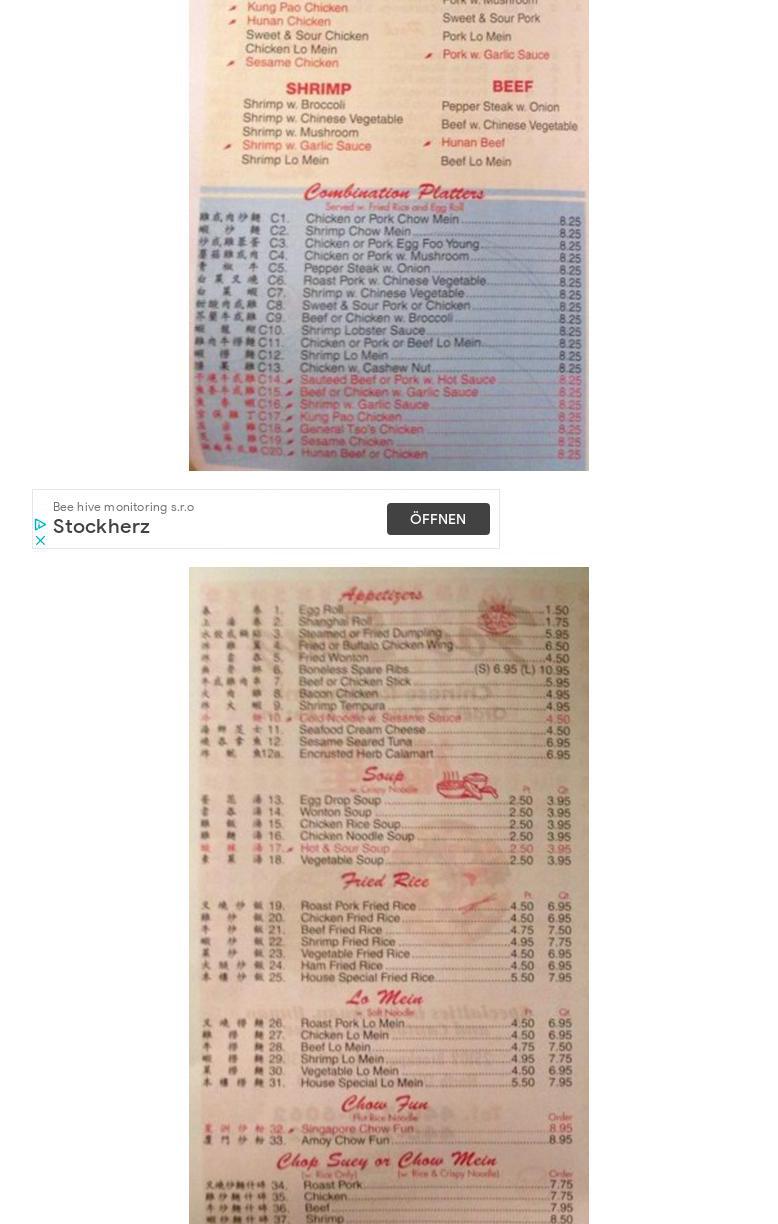 Kung Pao Chicken
Hunan Chicken
Sweet & Sour Chicken
Chicken Lo Mein
Sesame Chicken
Pork w. Mushroom
Sweet & Sour Pork
Pork Lo Mein
Pork w. Garlic Sauce
SHRIMP
Shrimp w. Broccoli
Shrimp w. Chinese Vegetable
Shrimp w. Mushroom
Shrimp w. Garlic Sauce
Shrimp Lo Mein
BEEF
Pepper Steak w. Onion
Beef w. Chinese Vegetable
Hunan Beef
Beef Lo Mein
Combination Platters
Served w. Fried Rice and Egg Roll
雞或肉炒麵 C1. Chicken or Pork Chow Mein 8.25
蝦炒麵 C2. Shrimp Chow Mein 8.25
C3. Chicken or Pork Egg Foo Young 8.25
蘑菇雞或肉 C4. Chicken or Pork w. Mushroom 8.25
青椒牛 C5. Pepper Steak w. Onion 8.25
白菜叉燒 C6. Roast Pork w. Chinese Vegetable 8.25
白菜蝦 C7. Shrimp w. Chinese Vegetable 8.25
甜酸肉或雞 C8. Sweet & Sour Pork or Chicken 8.25
芥蘭牛或雞 C9. Beef or Chicken w. Broccoli 8.25
蝦龍糊 C10. Shrimp Lobster Sauce 8.25
C11. Chicken or Pork or Beef Lo Mein 8.25
蝦撈麵 C12. Shrimp Lo Mein 8.25
腰果雞 C13. Chicken w. Cashew Nut 8.25
干燒牛或雞 C14. Sauteed Beef or Pork w. Hot Sauce 8.25
魚香牛或雞 C15. Beef or Chicken w. Garlic Sauce 8.25
魚香蝦 C16. Shrimp w. Garlic Sauce 8.25
宮保雞丁 C17. Kung Pao Chicken 8.25
C18. General Tso's Chicken 8.25
芝麻雞 C19. Sesame Chicken 8.25
湖南牛或雞 C20. Hunan Beef or Chicken 8.25
Bee hive monitoring s.r.o
Stockherz
ÖFFNEN
Appetizers
春卷 1. Egg Roll 1.50
上海卷 2. Shanghai Roll 1.75
水餃或鍋貼 3. Steamed or Fried Dumpling 5.95
炸雞翼 4. Fried or Buffalo Chicken Wing 6.50
炸雲吞 5. Fried Wonton 4.50
無骨排 6. Boneless Spare Ribs (S) 6.95 (L) 10.95
牛或雞肉串 7. Beef or Chicken Stick 5.95
火肉雞 8. Bacon Chicken 4.95
炸大蝦 9. Shrimp Tempura 4.95
冷麵 10. Cold Noodle w. Sesame Sauce 4.50
海鮮芝士 11. Seafood Cream Cheese 4.50
12. Sesame Seared Tuna 6.95
炸魷魚 12a. Encrusted Herb Calamart 6.95
Soup
w. Crispy Noodle
Pt. Qt.
蛋花湯 13. Egg Drop Soup 2.50 3.95
雲吞湯 14. Wonton Soup 2.50 3.95
雞飯湯 15. Chicken Rice Soup 2.50 3.95
雞麵湯 16. Chicken Noodle Soup 2.50 3.95
酸辣湯 17. Hot & Sour Soup 2.50 3.95
素菜湯 18. Vegetable Soup 2.50 3.95
Fried Rice
Pt. Qt.
叉燒炒飯 19. Roast Pork Fried Rice 4.50 6.95
雞炒飯 20. Chicken Fried Rice 4.50 6.95
牛炒飯 21. Beef Fried Rice 4.75 7.50
蝦炒飯 22. Shrimp Fried Rice 4.95 7.75
菜炒飯 23. Vegetable Fried Rice 4.50 6.95
火腿炒飯 24. Ham Fried Rice 4.50 6.95
本樓炒飯 25. House Special Fried Rice 5.50 7.95
Lo Mein
w. Soft Noodle
Pt. Qt.
叉燒撈麵 26. Roast Pork Lo Mein 4.50 6.95
雞撈麵 27. Chicken Lo Mein 4.50 6.95
牛撈麵 28. Beef Lo Mein 4.75 7.50
蝦撈麵 29. Shrimp Lo Mein 4.95 7.75
菜撈麵 30. Vegetable Lo Mein 4.50 6.95
本樓撈麵 31. House Special Lo Mein 5.50 7.95
Chow Fun
Flat Rice Noodle
Order
星洲炒粉 32. Singapore Chow Fun 8.95
廈門炒粉 33. Amoy Chow Fun 8.95
Chop Suey or Chow Mein
(w. Rice Only) (w. Rice & Crispy Noodle)
Order
叉燒炒麵什碎 34. Roast Pork 7.75
雞炒麵什碎 35. Chicken 7.75
牛炒麵什碎 36. Beef 7.95
蝦炒麵什碎 37. Shrimp 8.50